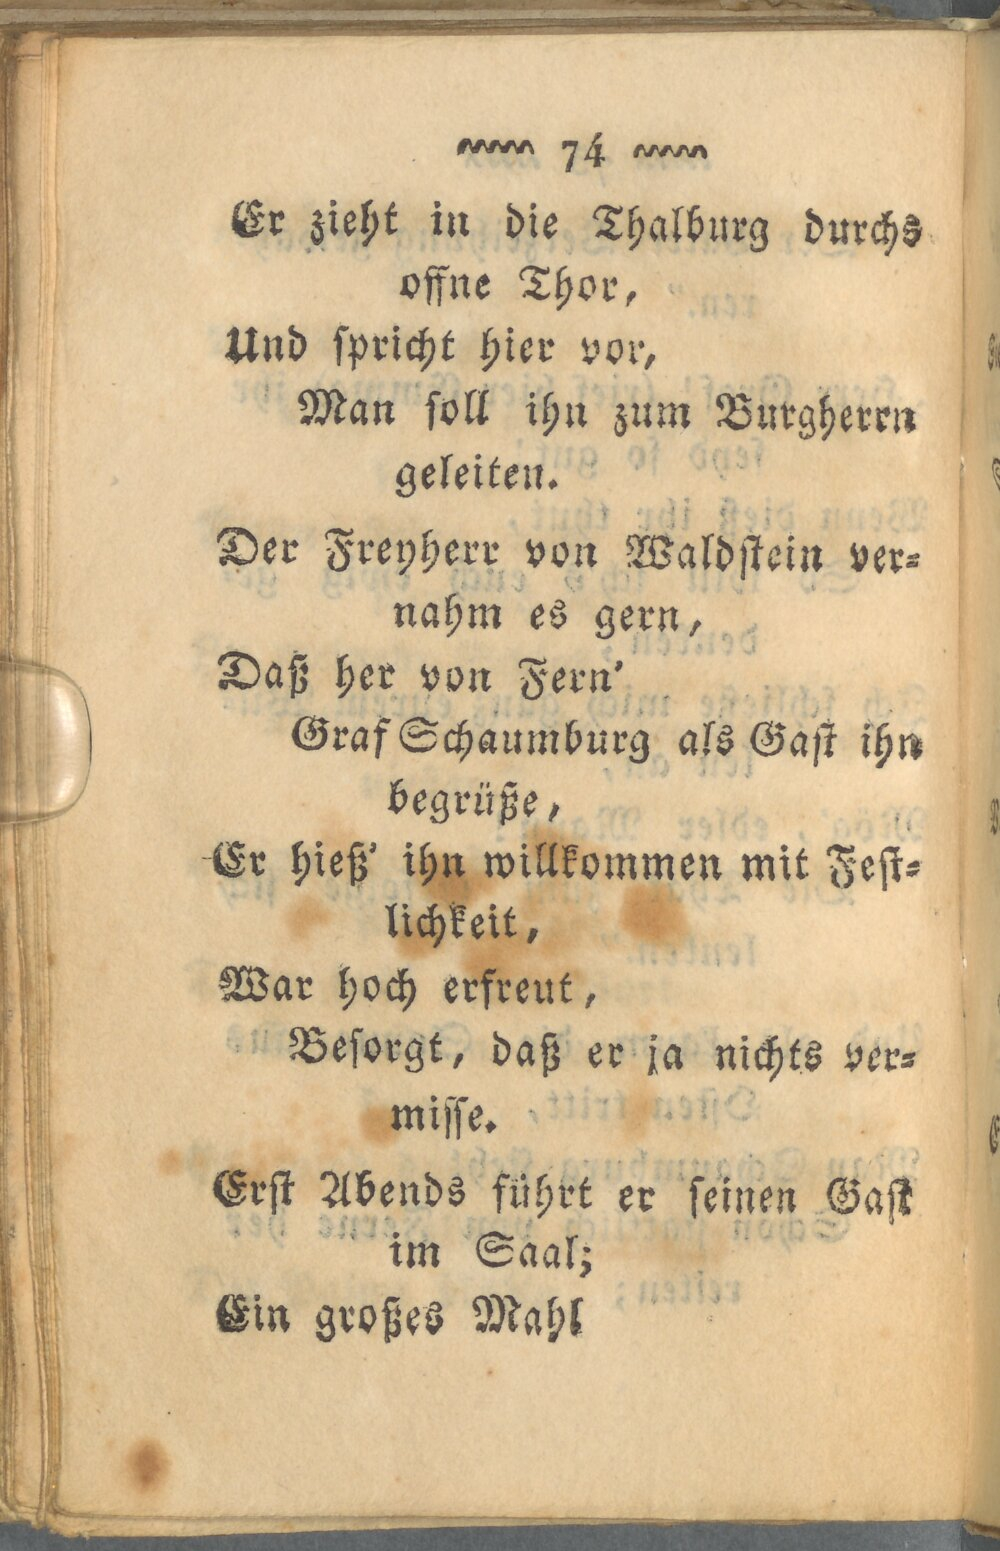 74
Er zieht in die Thalburg durchs
offne Thor,
Und spricht hier vor,
Man soll ihn zum Burgherrn
geleiten.
Der Freyherr von Waldstein ver-
nahm es gern,
Daß her von Fern'
Graf Schaumburg als Gast ihn
begrüße,
Er hieß' ihn willkommen mit Fest-
lichkeit,
War hoch erfreut,
Besorgt, daß er ja nichts ver-
misse.
Erst Abends führt er seinen Gast
im Saal;
Ein großes Mahl